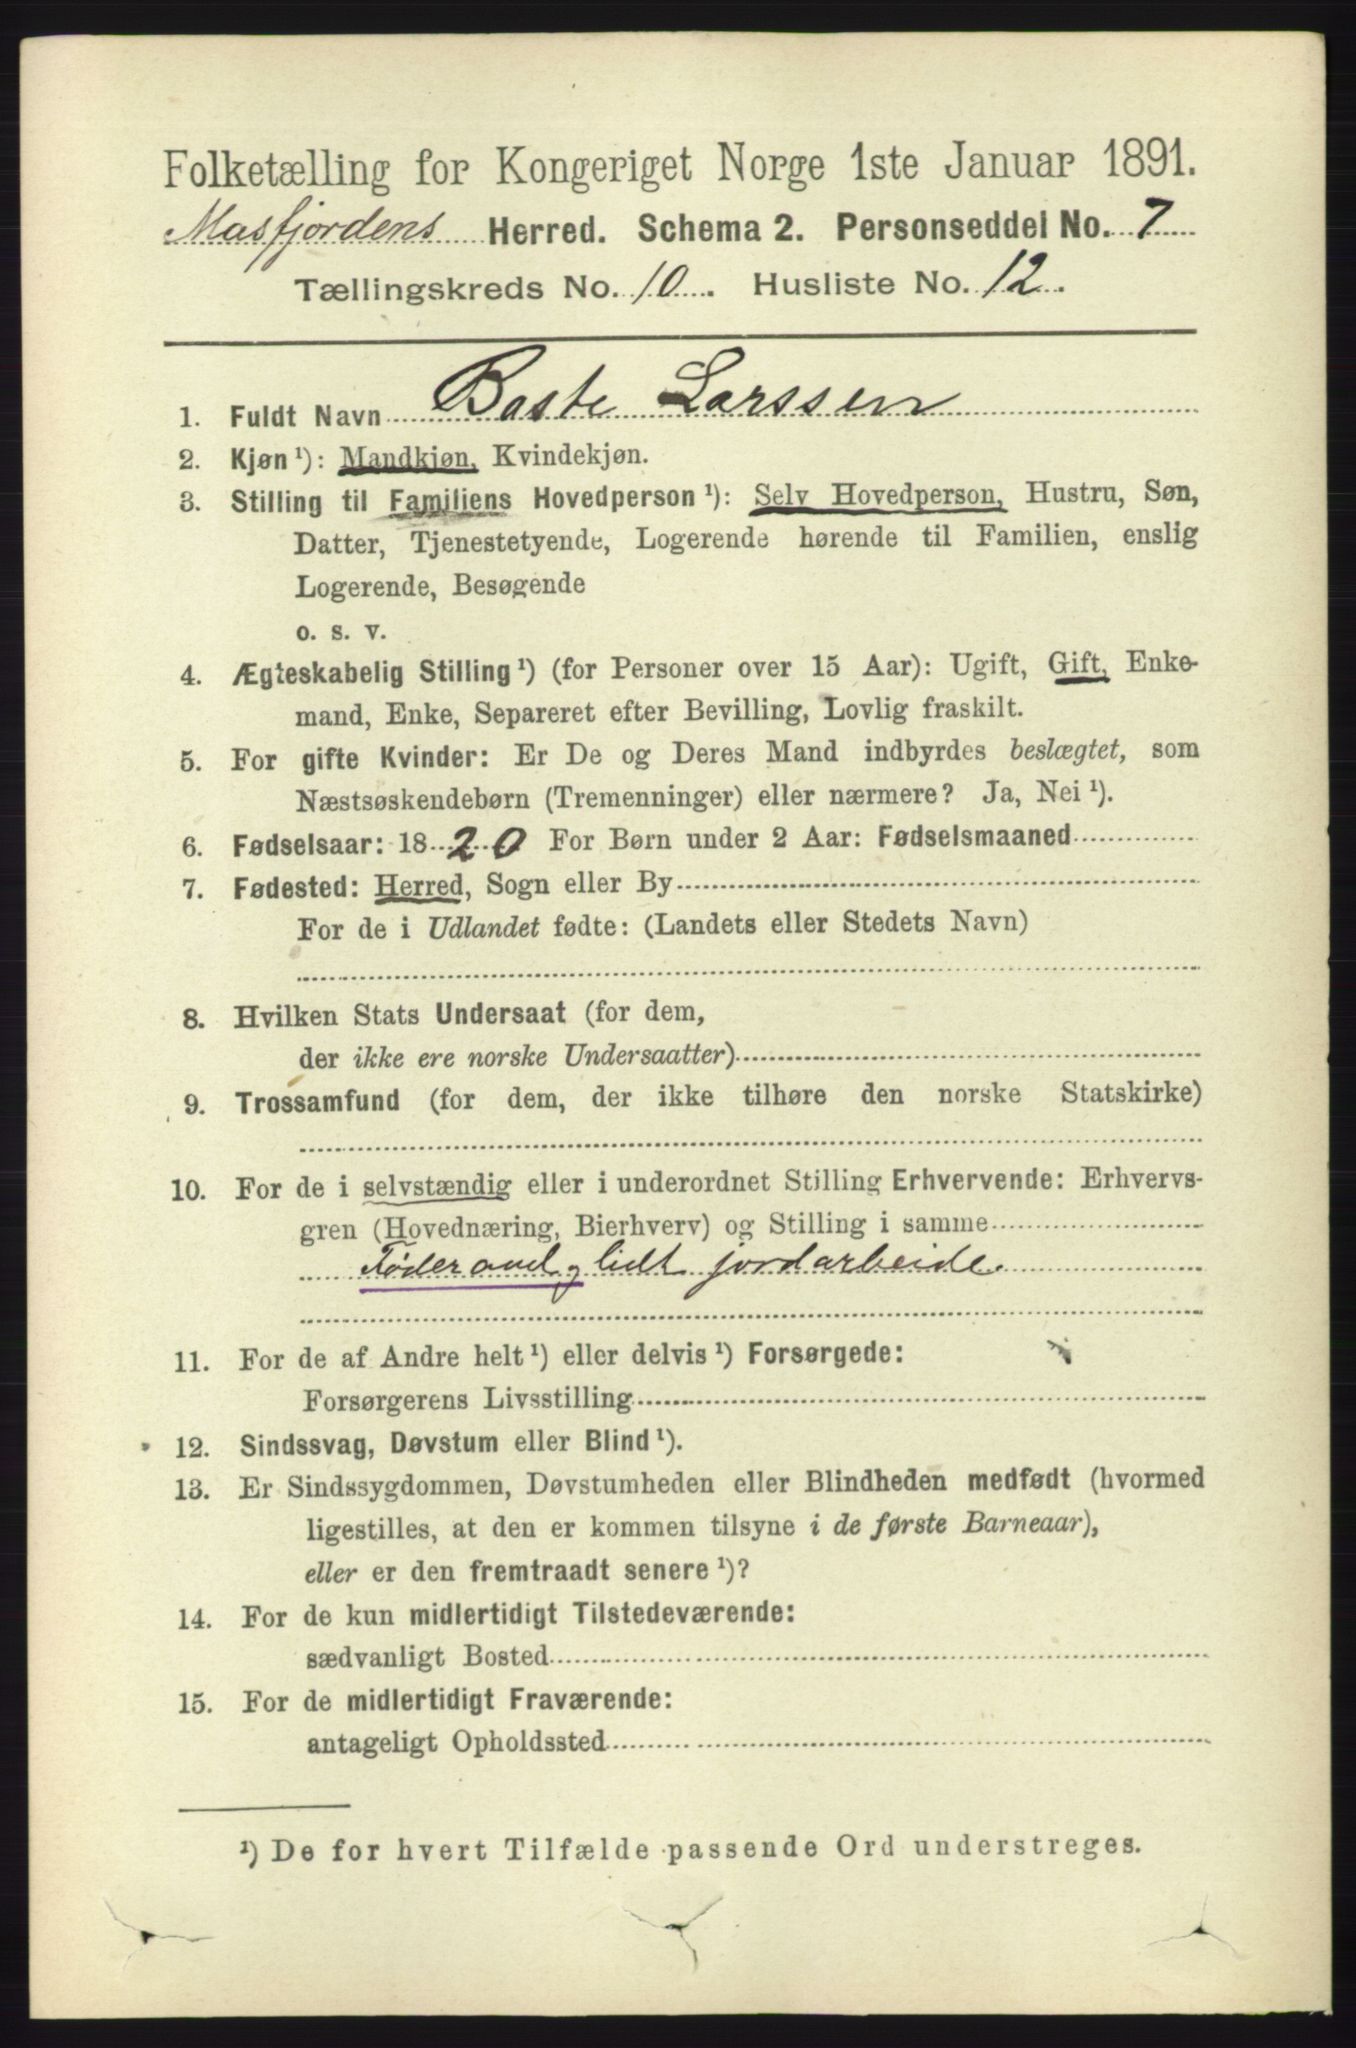 Folketælling for Kongeriget Norge 1ste Januar 1891.
Masfjordens Herred. Schema 2. Personseddel No. 7
Tællingskreds No. 10. Husliste No. 12.
1. Fuldt Navn Baste Larssen
2. Kjøn ¹): Mandkjøn, Kvindekjøn.
3. Stilling til Familiens Hovedperson ¹): Selv Hovedperson, Hustru, Søn,
Datter, Tjenestetyende, Logerende hørende til Familien, enslig
Logerende, Besøgende
o. s. v.
4. Ægteskabelig Stilling ¹) (for Personer over 15 Aar): Ugift, Gift, Enke-
mand, Enke, Separeret efter Bevilling, Lovlig fraskilt.
5. For gifte Kvinder: Er De og Deres Mand indbyrdes beslægtet, som
Næstsøskendebørn (Tremenninger) eller nærmere? Ja, Nei ¹).
6. Fødselsaar: 1820 For Børn under 2 Aar: Fødselsmaaned
7. Fødested: Herred, Sogn eller By
For de i Udlandet fødte: (Landets eller Stedets Navn)
8. Hvilken Stats Undersaat (for dem,
der ikke ere norske Undersaatter)
9. Trossamfund (for dem, der ikke tilhøre den norske Statskirke)
10. For de i selvstændig eller i underordnet Stilling Erhvervende: Erhvervs-
gren (Hovednæring, Bierhverv) og Stilling i samme
Føderaad og lidt jordarbeide.
11. For de af Andre helt ¹) eller delvis ¹) Forsørgede:
Forsørgerens Livsstilling
12. Sindssvag, Døvstum eller Blind ¹).
13. Er Sindssygdommen, Døvstumheden eller Blindheden medfødt (hvormed
ligestilles, at den er kommen tilsyne i de første Barneaar),
eller er den fremtraadt senere ¹)?
14. For de kun midlertidigt Tilstedeværende:
sædvanligt Bosted
15. For de midlertidigt Fraværende:
antageligt Opholdssted
¹) De for hvert Tilfælde passende Ord understreges.